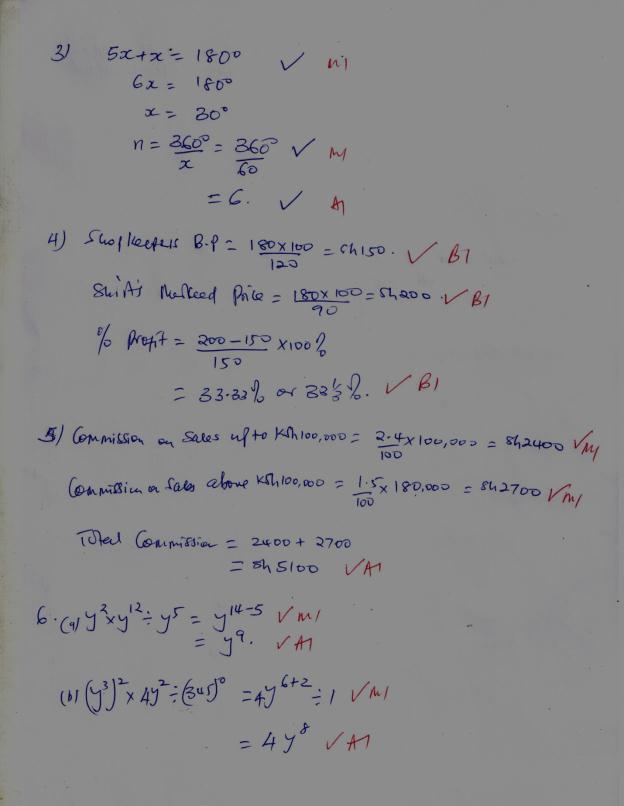 3) 5x+x = 180° ✓ M1
6x = 180°
x = 30°
n = 360°/x = 360°/60 ✓ M1
= 6. ✓ A1
4) Shopkeepers B.P = 180×100/120 = Sh150. ✓ B1
Shirt's Marked Price = 180×100/90 = Sh200. ✓ B1
% Profit = 200-150/150 ×100%
= 33.33% or 33⅓%. ✓ B1
5) Commission on Sales up to Ksh100,000 = 2.4/100 ×100,000 = Sh2400 ✓M1
Commission on Sales above Ksh100,000 = 1.5/100 × 180,000 = Sh2700 ✓M1
Total Commission = 2400 + 2700
= Sh 5100 ✓A1
6. (a) y²×y¹²÷y⁵ = y¹⁴⁻⁵ ✓M1
= y⁹. ✓A1
(b) (y³)² × 4y² ÷ (345)⁰ = 4y⁶⁺² ÷ 1 ✓M1
= 4y⁸ ✓A1